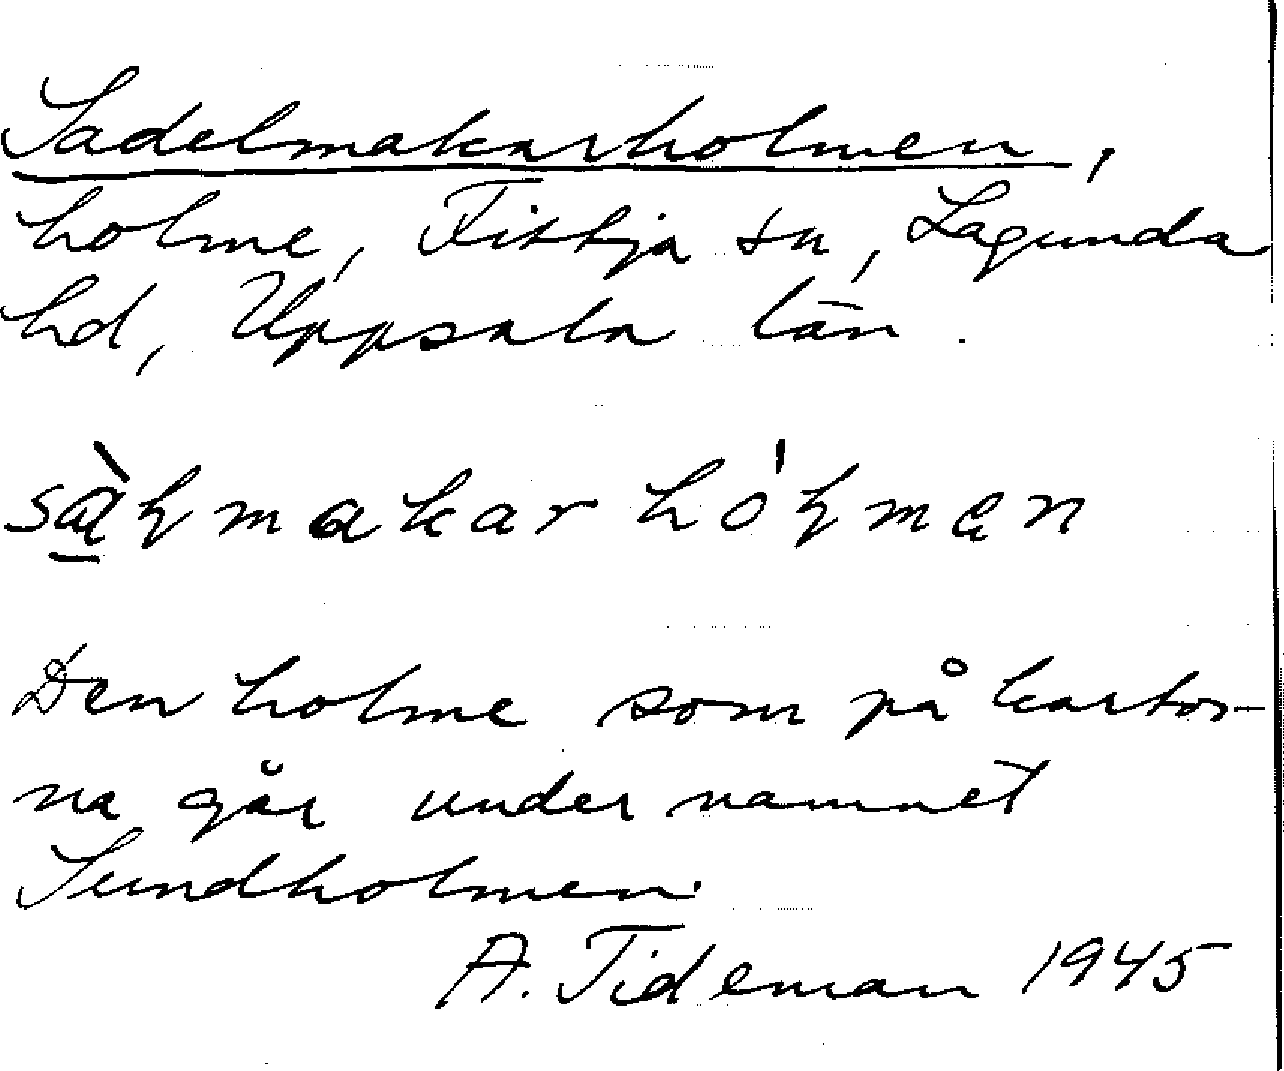 Sadelmakarholmen,
holme, Fittja sn, Lagunda
hd, Uppsala län.
sàɽmakarhóɽmən
Den holme som på kartor-
na går under namnet
Sundholmen.
A. Tideman 1945